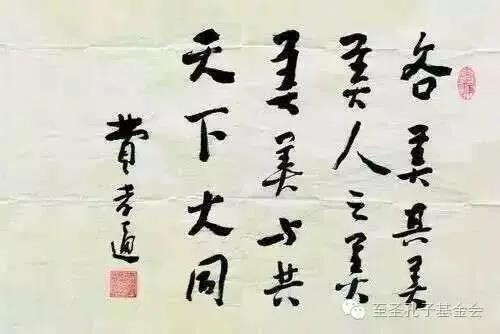 各美其美
美人之美
美美与共
天下大同
费孝通
至圣孔子基金会